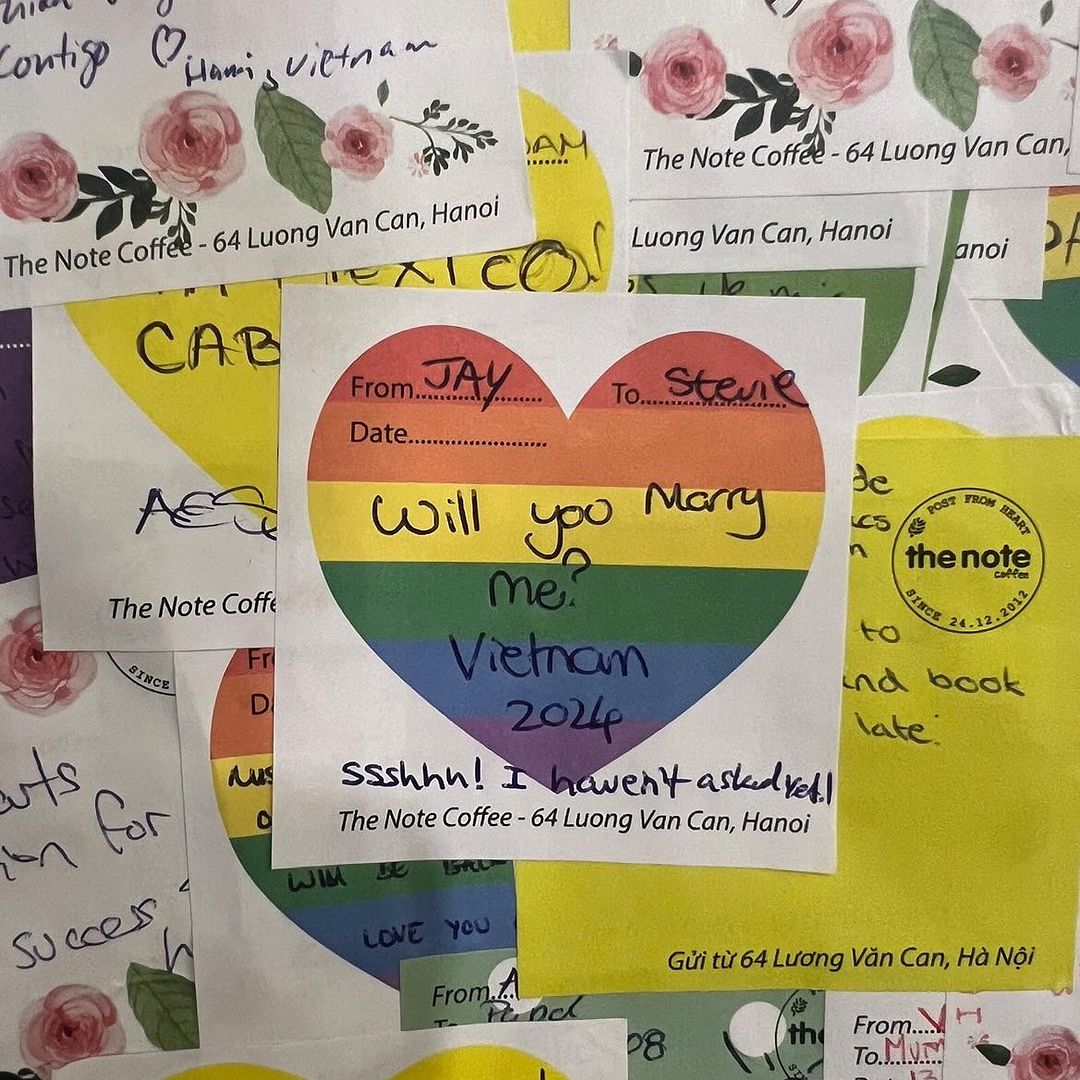 Contigo ♡ Hanoi, Vietnam
The Note Coffee - 64 Luong Van Can, Hanoi
The Note Coffee - 64 Luong Van Can,
Luong Van Can, Hanoi
anoi
MEXICO!
CAB
The Note Coffe
From JAY To Stevie
Date
Will you Marry
Me?
Vietnam
2024
SSShhh! I haven't asked yet!
The Note Coffee - 64 Luong Van Can, Hanoi
POST FROM HEART
the note
coffee
SINCE 24.12.2012
to
and book
late.
Gửi từ 64 Lương Văn Can, Hà Nội
SINCE
for
success
WILL BE BACK
LOVE YOU
From
the
08
From VH
To MUM